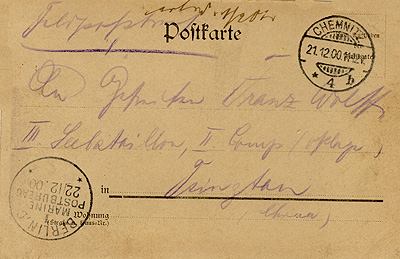 Feldpostbrief
Postkarte
CHEMNITZ
21.12.00
* 4 b
An Gefreiten Franz Wolff
III Seebataillon, II Comp
in Tsingtau
China
Wohnung
BERLIN C
MARINE
POSTBUREAU
22/12.00